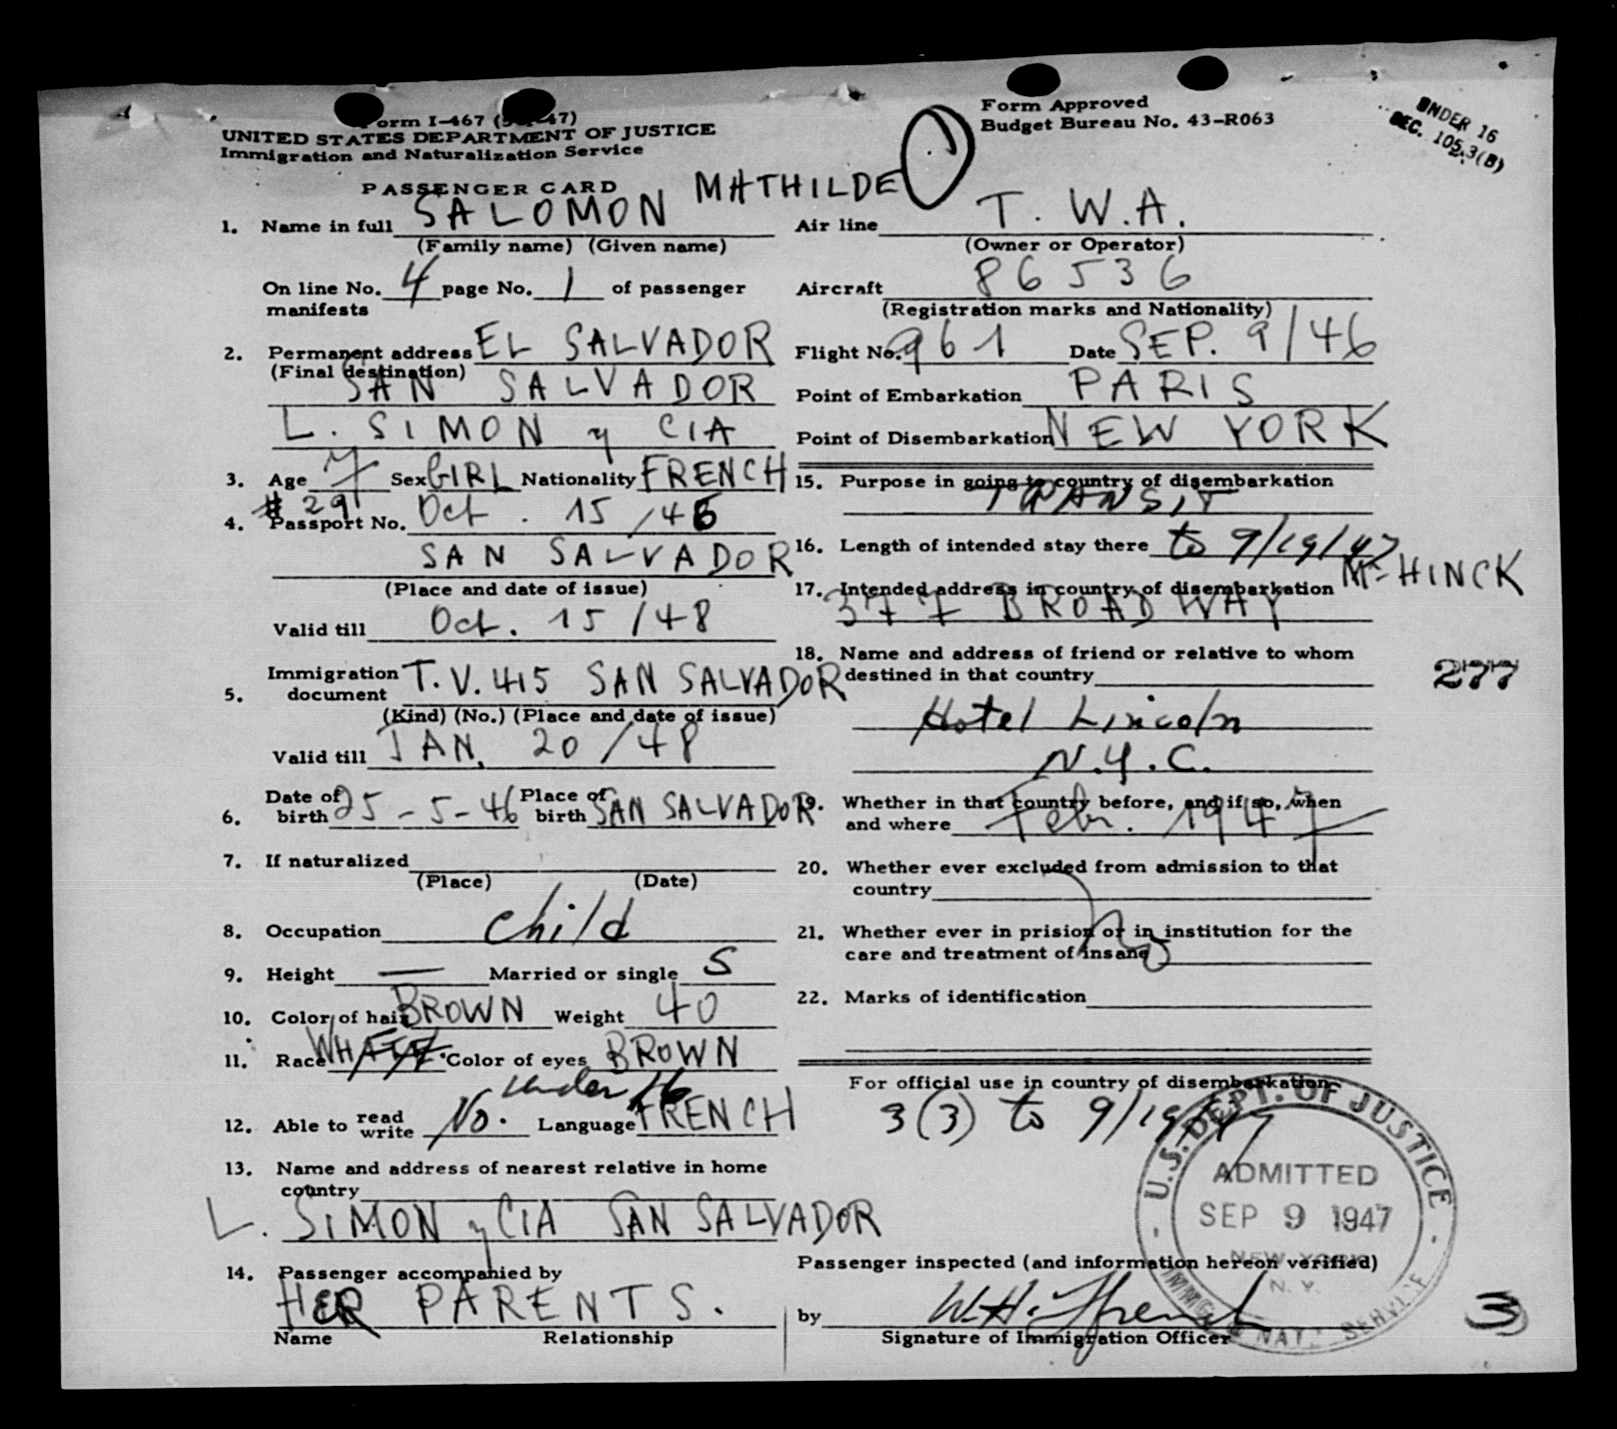 Form I-467 (
UNITED STATES DEPARTMENT OF JUSTICE
Immigration and Naturalization Service
PASSENGER CARD
1. Name in full SALOMON MATHILDE
(Family name) (Given name)
On line No. 4 page No. 1 of passenger
manifests
2. Permanent address EL SALVADOR
(Final destination)
SAN SALVADOR
L. SIMON y CIA
3. Age 7 Sex GIRL Nationality FRENCH
# 291
4. Passport No. Oct. 15/46
SAN SALVADOR
(Place and date of issue)
Valid till Oct. 15/48
5. Immigration document T.V. 415 SAN SALVADOR
(Kind) (No.) (Place and date of issue)
Valid till JAN. 20/48
6. Date of birth 25-5-46 Place of birth SAN SALVADOR
7. If naturalized
(Place) (Date)
8. Occupation child
9. Height — Married or single S
10. Color of hair BROWN Weight 40
11. Race Color of eyes BROWN
under 16
12. Able to read write No. Language FRENCH
13. Name and address of nearest relative in home
country
L. SIMON y CIA SAN SALVADOR
14. Passenger accompanied by
HER PARENTS.
Name Relationship
Form Approved
Budget Bureau No. 43-R063
UNDER 16
SEC. 105.3(B)
Air line T. W. A.
(Owner or Operator)
Aircraft 86536
(Registration marks and Nationality)
Flight No. 961 Date SEP. 9/46
Point of Embarkation PARIS
Point of Disembarkation NEW YORK
15. Purpose in going to country of disembarkation
TRANSIT
16. Length of intended stay there to 9/19/47
17. Intended address in country of disembarkation
377 BROADWAY HINCK
18. Name and address of friend or relative to whom
destined in that country
Hotel Lincoln
N.Y.C.
277
19. Whether in that country before, and if so, when
and where Febr. 1947
20. Whether ever excluded from admission to that
country
21. Whether ever in prision or in institution for the
care and treatment of insane
22. Marks of identification
For official use in country of disembarkation
3(3) to 9/19/47
U.S. DEPT. OF JUSTICE
ADMITTED
SEP 9 1947
NEW YORK
N. Y.
IMMIG. & NAT. SERVICE
Passenger inspected (and information hereon verified)
by W.H.
Signature of Immigration Officer
3